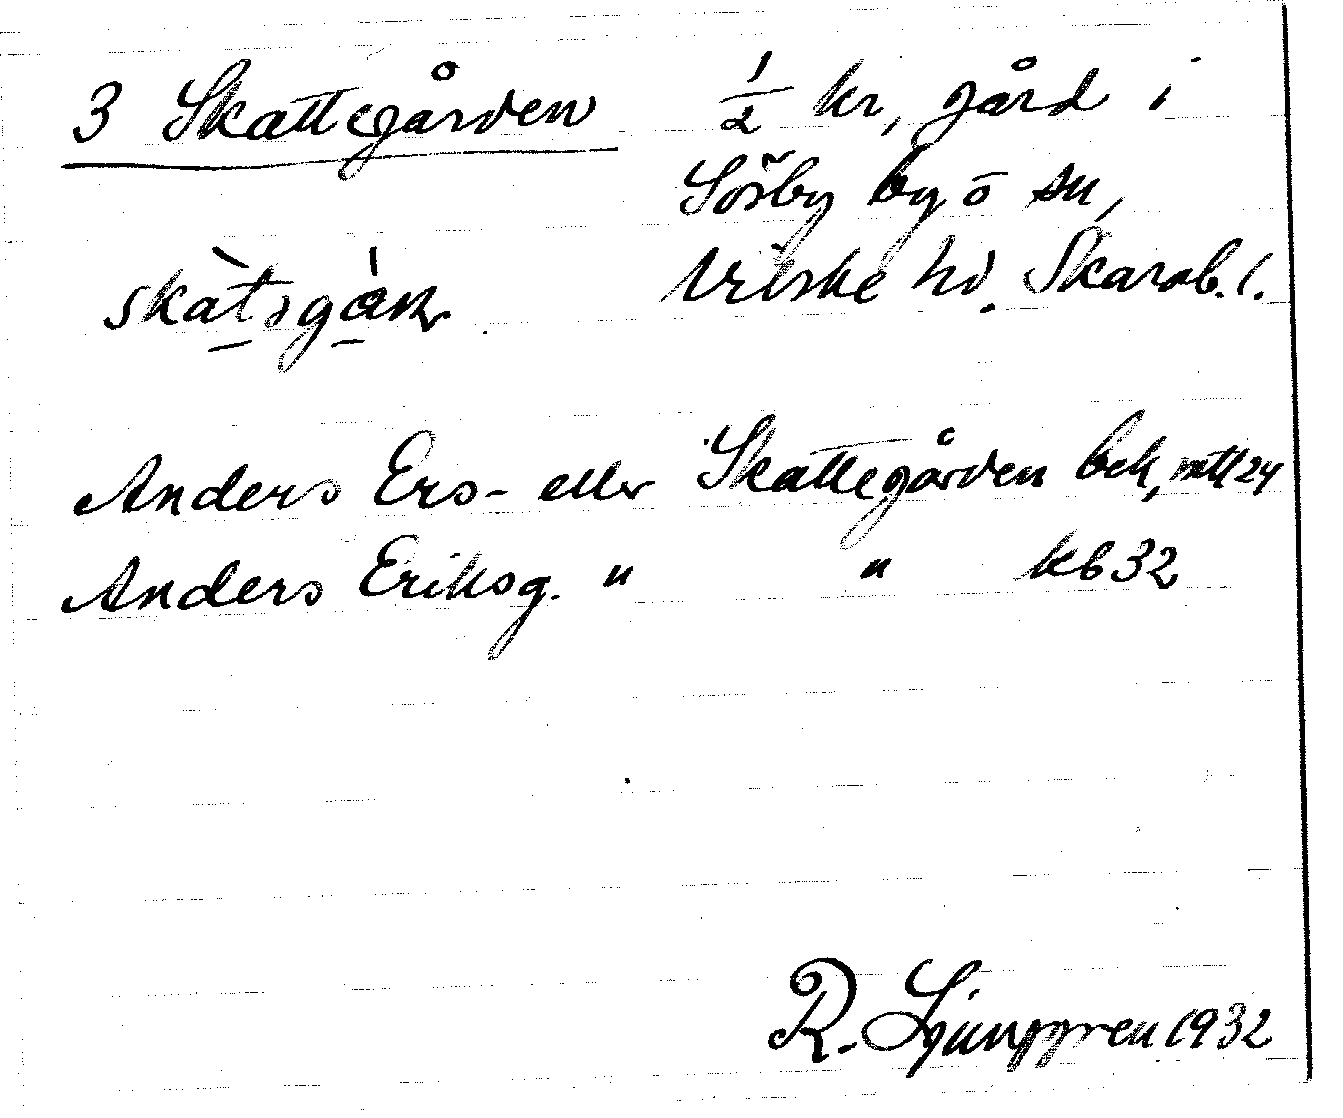 3 Skattegården
1/2 kr, gård i
Sörby by ö sn,
Vilske hd. Skarab. l.
skàtəgán
Anders Ers- eller Skattegården bek, mtl 24
Anders Eriksg. " " kb 32
R. Ljunggren 1932